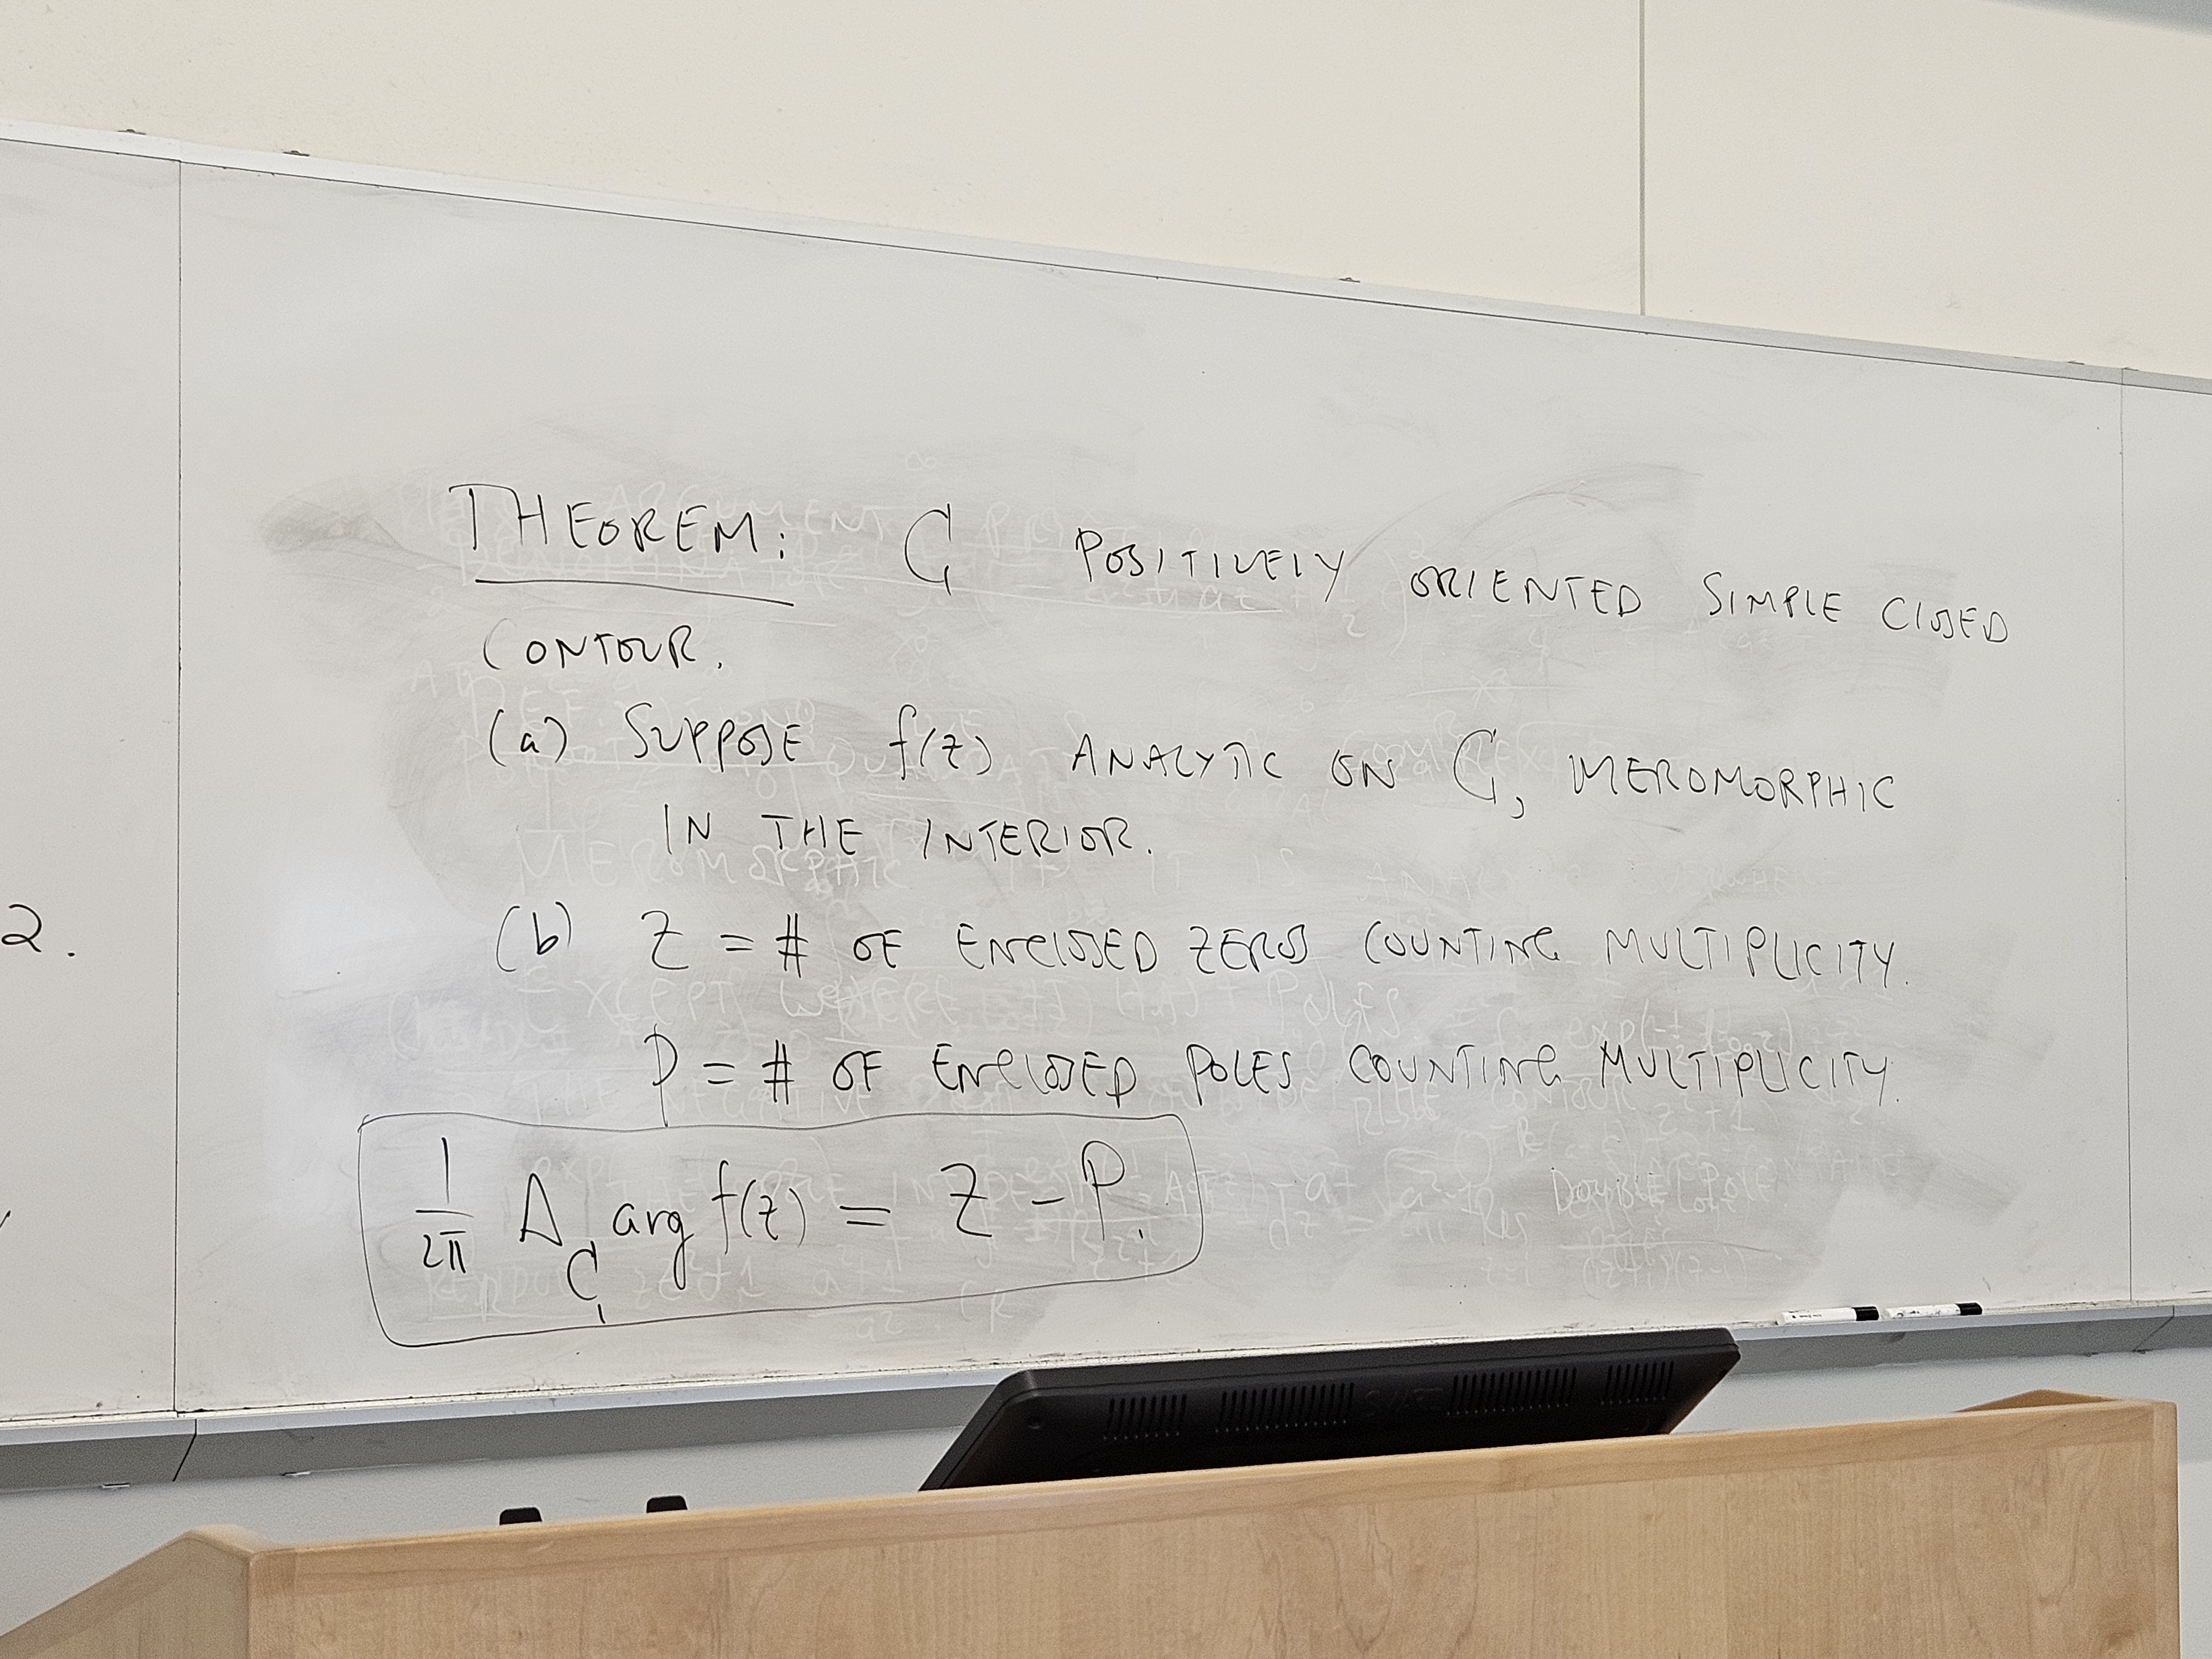 THEOREM: C POSITIVELY ORIENTED SIMPLE CLOSED
CONTOUR.
(a) SUPPOSE f(z) ANALYTIC ON C, MEROMORPHIC
IN THE INTERIOR.
2.
(b) Z = # OF ENCLOSED ZEROS COUNTING MULTIPLICITY.
P = # OF ENCLOSED POLES COUNTING MULTIPLICITY.
1/2π Δ_C arg f(z) = Z - P.